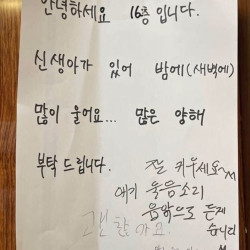 안녕하세요 16층 입니다.
신생아가 있어 밤에(새벽에)
많이 울어요... 많은 양해
부탁 드립니다.
잘 키우세요~
애기 울음소리
음악으로 듣겠
습니다
괜찮아요.